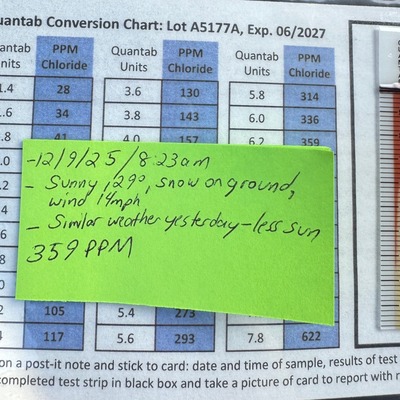 uantab Conversion Chart: Lot A5177A, Exp. 06/2027
uantab Units PPM Chloride Quantab Units PPM Chloride Quantab Units PPM Chloride
1.4 28 3.6 130 5.8 314
1.6 34 3.8 143 6.0 336
.8 41 4.0 157 6.2 359
-12/9/25/8:23am
- Sunny, 29°, snow on ground,
wind 14mph
- Similar weather yesterday - less sun
359 PPM
.0
.2
.4
.6
.8
.0
.2 105 5.4 273
.4 117 5.6 293 7.8 622
on a post-it note and stick to card: date and time of sample, results of test
completed test strip in black box and take a picture of card to report with